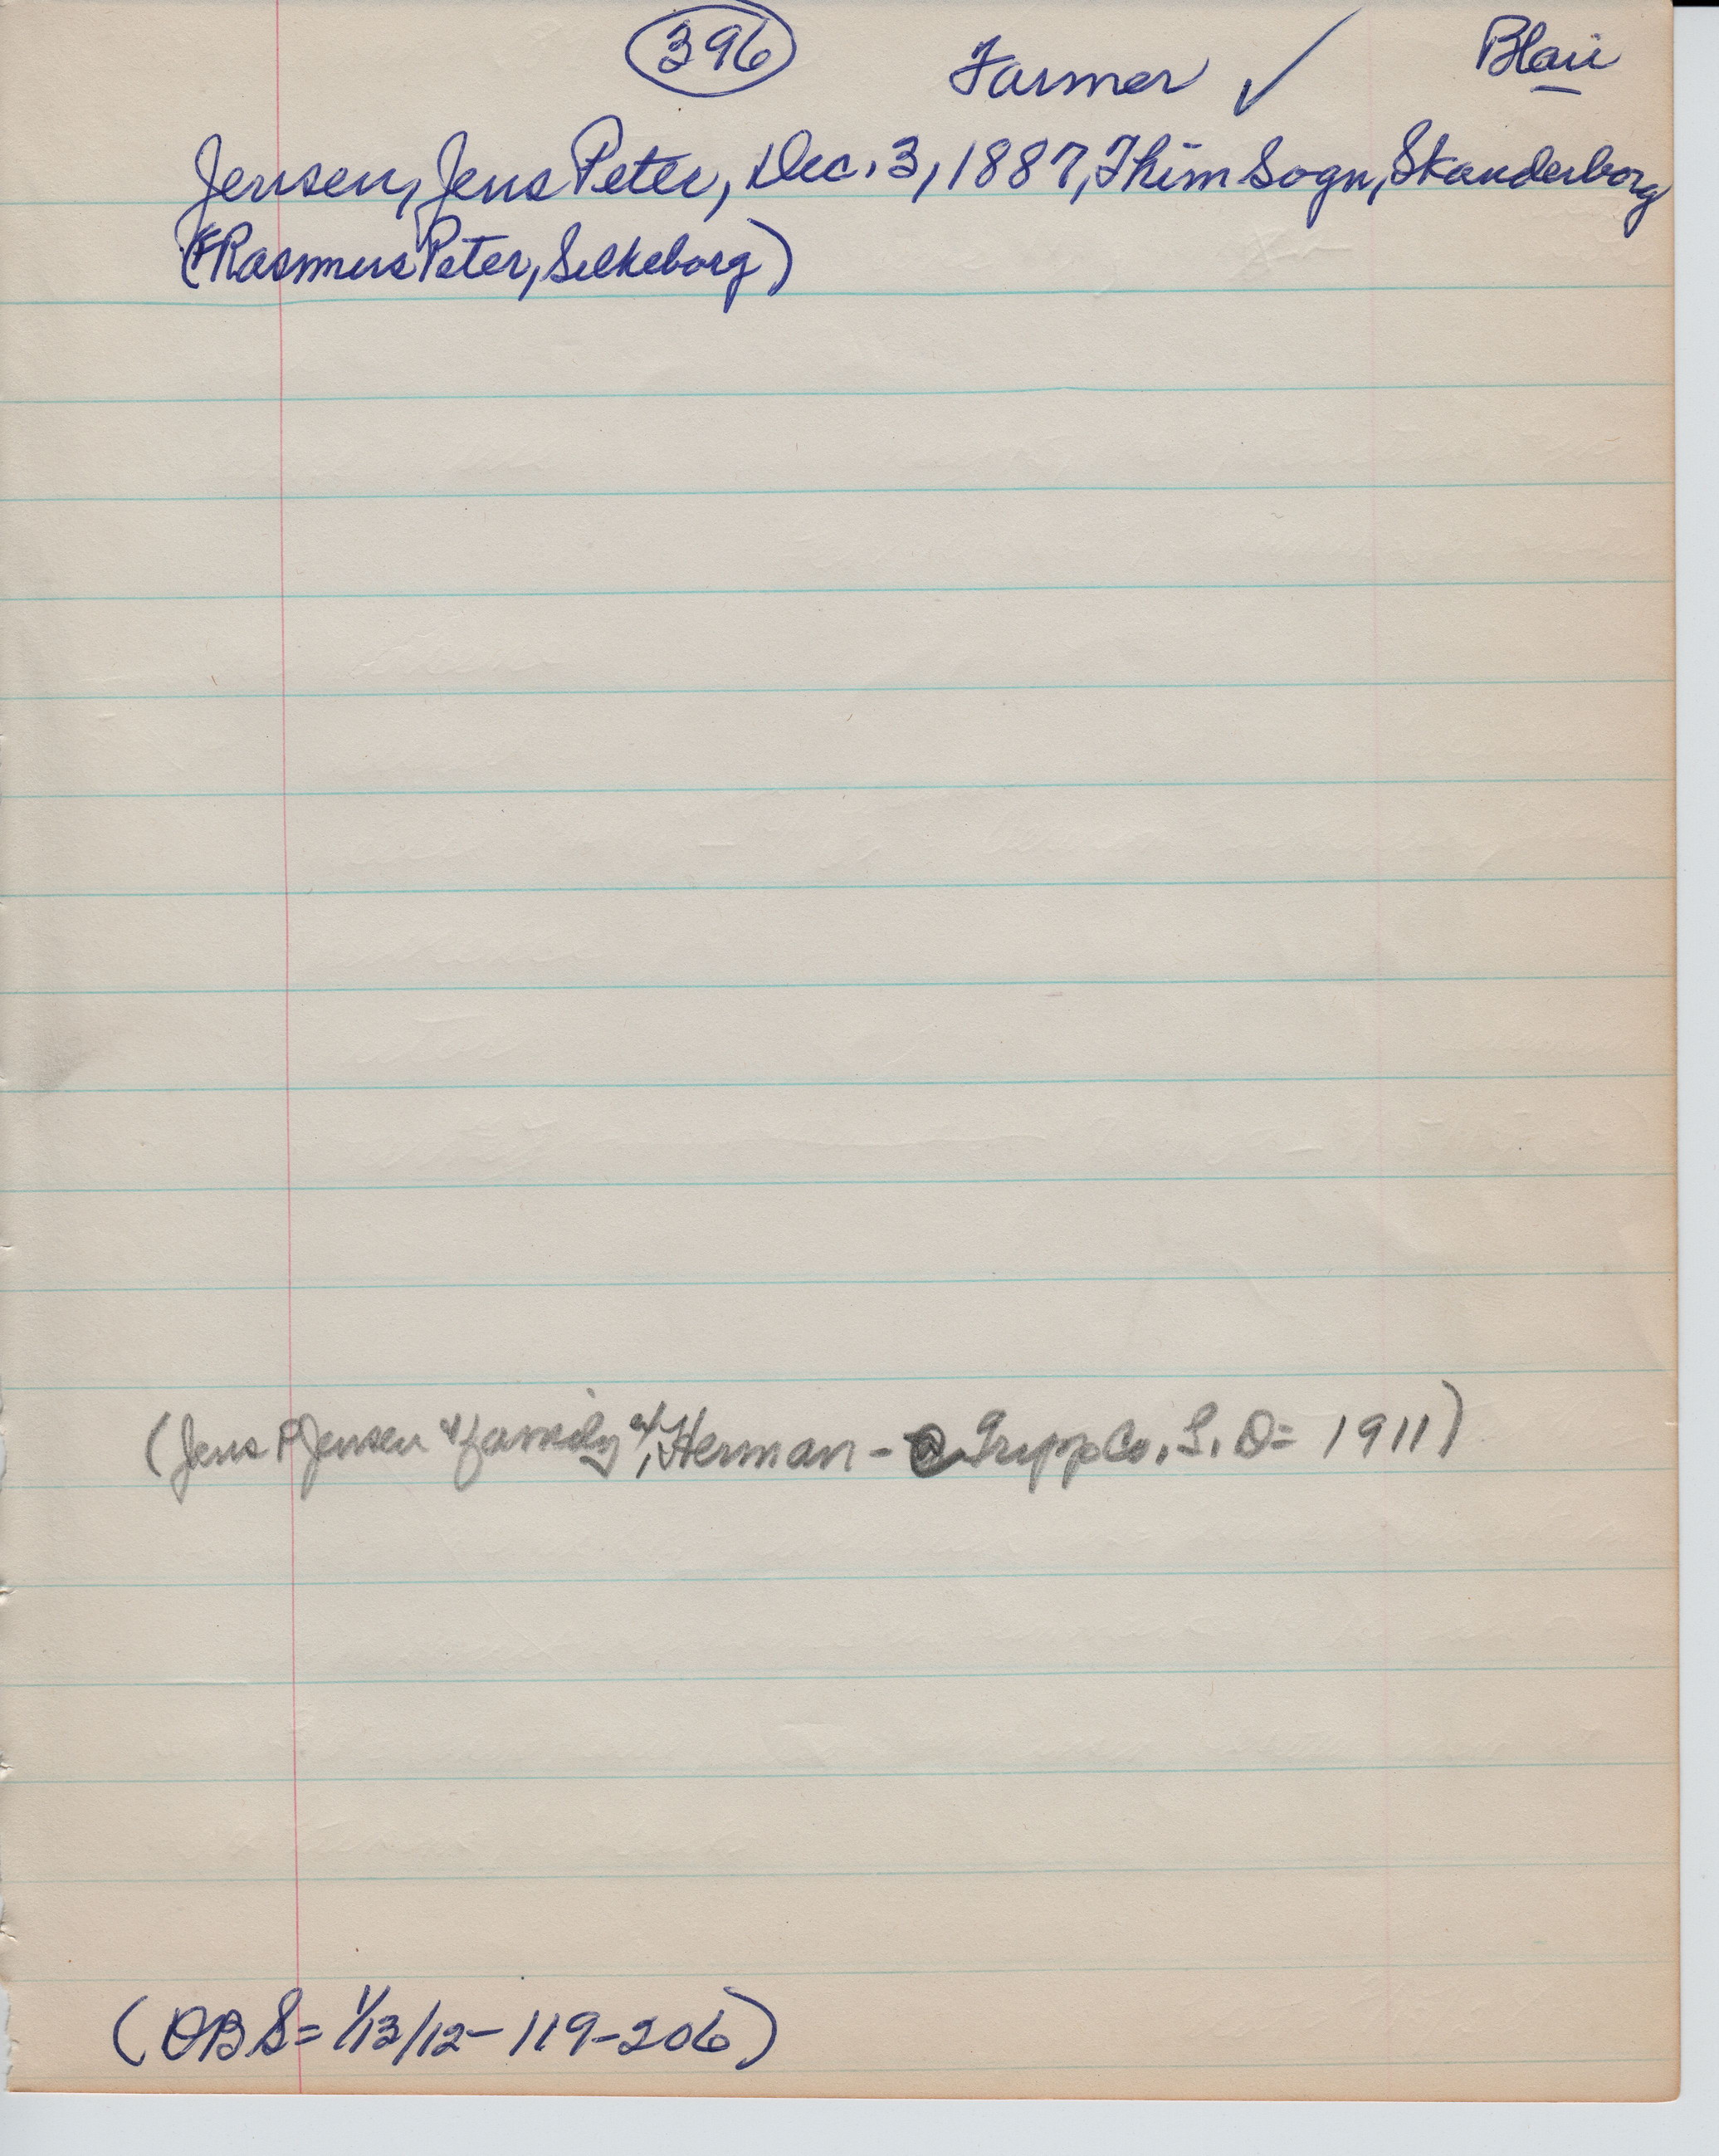 396 Farmer ✓ Blair
Jensen, Jens Peter, Dec. 3, 1887, Thim Sogn, Skanderborg
(F Rasmus Peter, Silkeborg)
(Jens P Jensen & family, Herman - Tripp Co. S. D = 1911)
(OBS = 1/13/12 - 119-206)